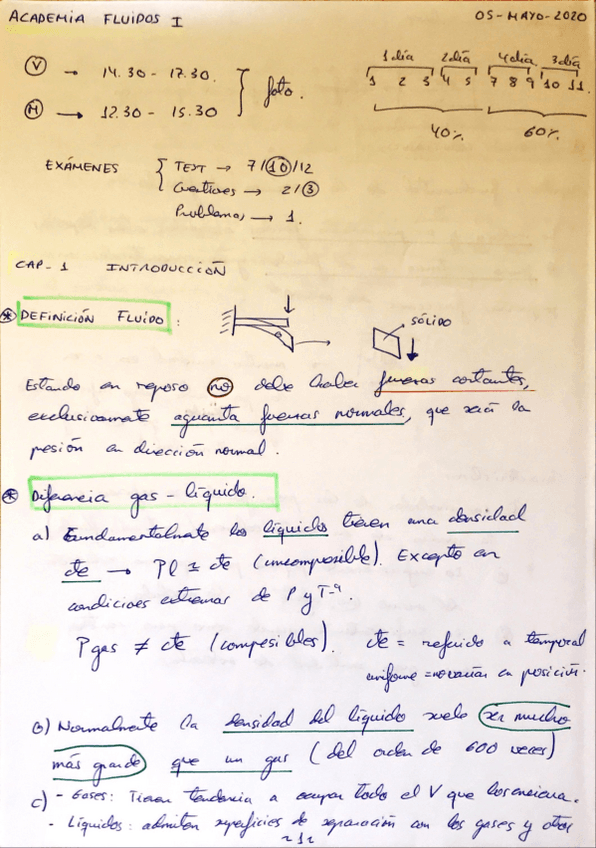 ACADEMIA FLUIDOS I
05-MAYO-2020
V → 14.30 - 17.30.
M → 12.30 - 15.30
foto.
1 día 2 día 4 día 3 día
1 2 3 4 5 7 8 9 10 11
40% 60%
EXÁMENES
TEST → 7/10/12
Cuestiones → 2/3
Problemas → 1.
CAP-1 INTRODUCCIÓN
* DEFINICIÓN FLUIDO:
SÓLIDO
Estando en reposo no debe haber fuerzas cortantes,
exclusivamente aguanta fuerzas normales, que será la
presión en dirección normal.
* Diferencia gas - líquido.
a) Fundamentalmente los líquidos tienen una densidad
cte → ρl ≈ cte (incompresible). Excepto en
condiciones extremas de P y Tª.
ρgas ≠ cte (compresibles). cte = referido a temporal
uniforme = no varían en posición.
b) Normalmente la densidad del líquido suele ser mucho
más grande que un gas (del orden de 600 veces)
c) - Gases: Tienen tendencia a ocupar todo el V que los encierra.
- Líquidos: admiten superficies de separación con los gases y otros
~1~